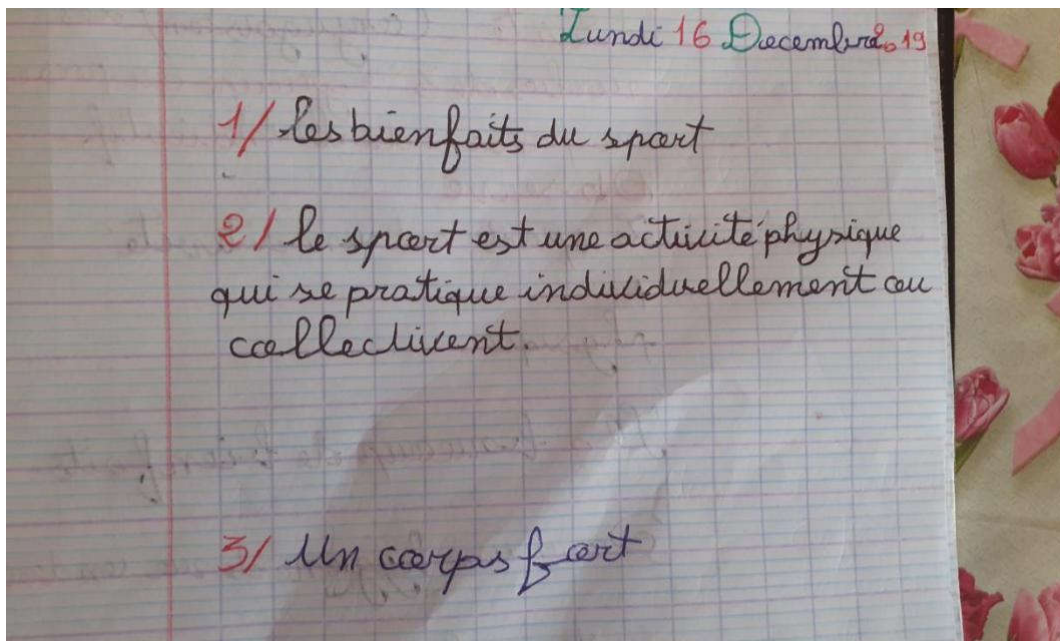 Lundi 16 Decembre 2019
1/ les bienfaits du sport
2/ le sport est une activité physique
qui se pratique individuellement ou
collectivent.
3/ Un corps fort